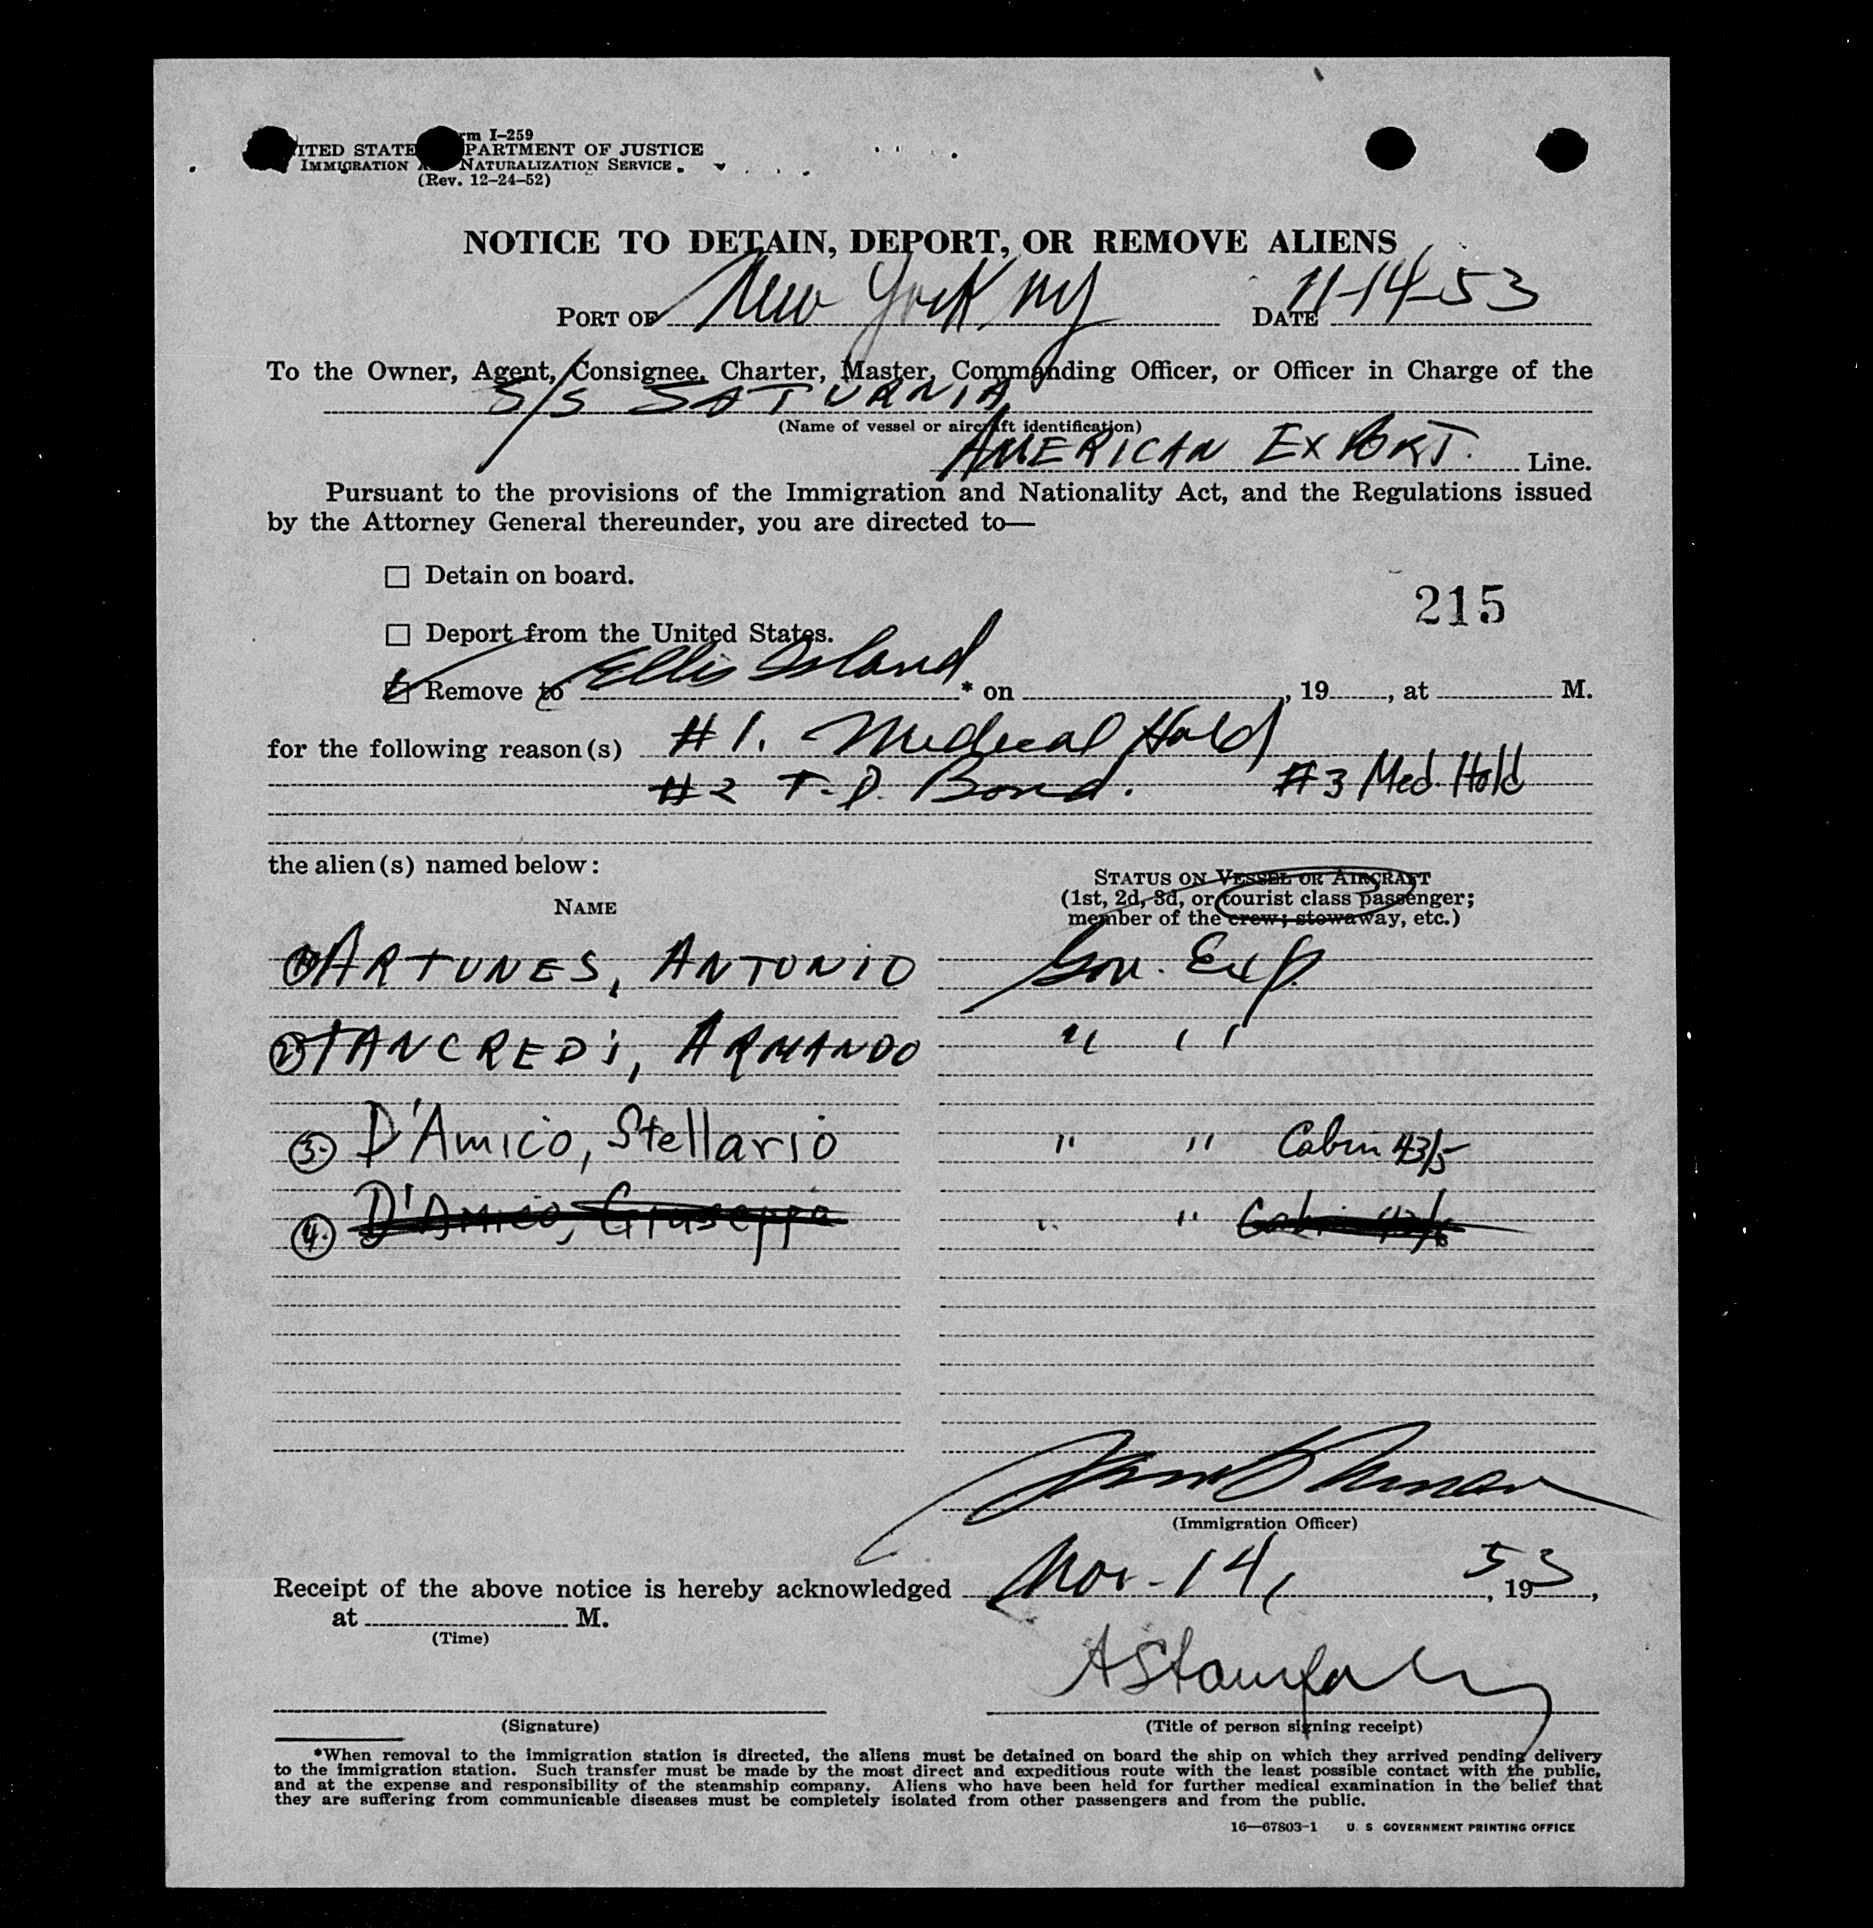 rm I-259
ITED STATE PARTMENT OF JUSTICE
IMMIGRATION NATURALIZATION SERVICE
(Rev. 12-24-52)
NOTICE TO DETAIN, DEPORT, OR REMOVE ALIENS
PORT OF New York NY DATE 11-14-53
To the Owner, Agent, Consignee, Charter, Master, Commanding Officer, or Officer in Charge of the
S/S SATURNIA
(Name of vessel or aircraft identification)
AMERICAN EXPORT. Line.
Pursuant to the provisions of the Immigration and Nationality Act, and the Regulations issued
by the Attorney General thereunder, you are directed to—
Detain on board.
215
Deport from the United States.
Remove to Ellis Island * on , 19 , at M.
for the following reason(s) #1. Medical Hold
#2 T.D. Bond. #3 Med. Hold
the alien(s) named below:
STATUS ON VESSEL OR AIRCRAFT
(1st, 2d, 3d, or tourist class passenger;
NAME
member of the crew; stowaway, etc.)
1 ARTUNES, ANTONIO Gov. Exp.
2 TANCREDi, ARMANDO " "
3. D'Amico, Stellario " " Cabin 43/5
4. D'Amico, Giuseppa " " Cabin
(Immigration Officer)
Receipt of the above notice is hereby acknowledged Nov-14, , 1953,
at M.
(Time)
(Signature) (Title of person signing receipt)
*When removal to the immigration station is directed, the aliens must be detained on board the ship on which they arrived pending delivery
to the immigration station. Such transfer must be made by the most direct and expeditious route with the least possible contact with the public,
and at the expense and responsibility of the steamship company. Aliens who have been held for further medical examination in the belief that
they are suffering from communicable diseases must be completely isolated from other passengers and from the public.
16—67803-1 U. S. GOVERNMENT PRINTING OFFICE